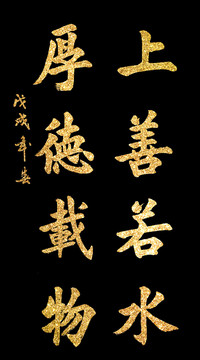 上善若水
厚德載物
戊戌年春